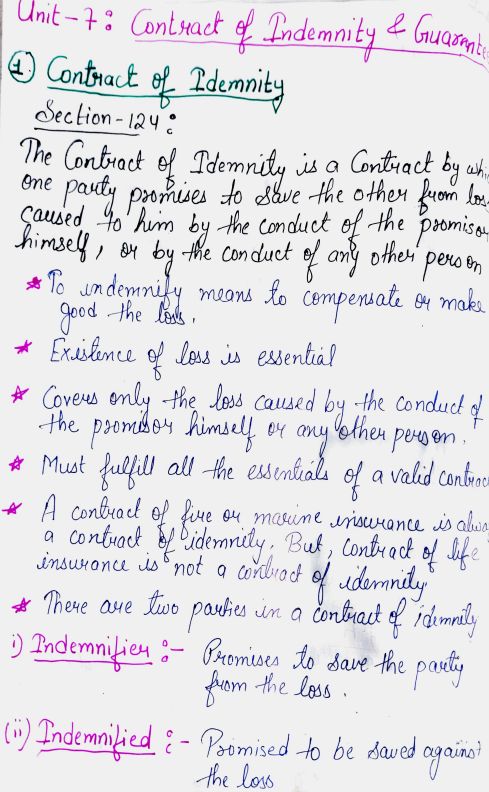 Unit-7: Contract of Indemnity & Guarante
1.) Contract of Idemnity
Section-124:
The Contract of Idemnity is a Contract by whi
one party promises to save the other from los
caused to him by the conduct of the promisor
himself, or by the conduct of any other person
* To indemnify means to compensate or make
good the loss.
* Existence of loss is essential
* Covers only the loss caused by the conduct of
the promisor himself or any other person.
* Must fulfill all the essentials of a valid contrac
* A contract of fire or marine insurance is alwa
a contract of idemnity. But, contract of life
insurance is not a contract of idemnity
* There are two parties in a contract of idemnity
i) Indemnifier :- Promises to save the party
from the loss.
(ii) Indemnified :- Promised to be saved against
the loss